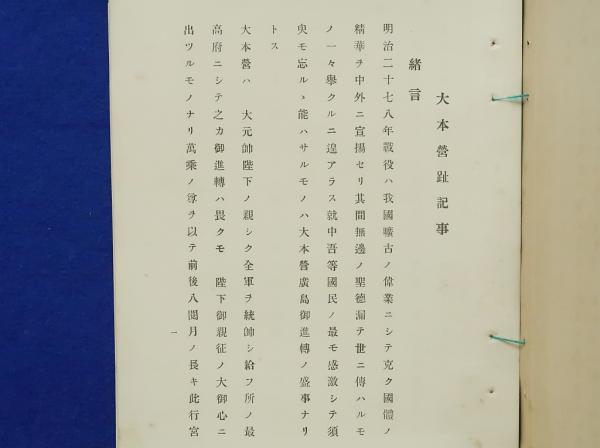 大本營趾記事
緒言
明治二十七八年戰役ハ我國曠古ノ偉業ニシテ克ク國體ノ
精華ヲ中外ニ宣揚セリ其間無邊ノ聖德漏テ世ニ傳ハルモ
ノ一々擧クルニ遑アラス就中吾等國民ノ最モ感激シテ須
臾モ忘ルヽ能ハサルモノハ大本營廣島御進轉ノ盛事ナリ
トス
大本營ハ　大元帥陛下ノ親シク全軍ヲ統帥シ給フ所ノ最
高府ニシテ之カ御進轉ハ畏クモ　陛下御親征ノ大御心ニ
出ツルモノナリ萬乘ノ尊ヲ以テ前後八閱月ノ長キ此行宮
一